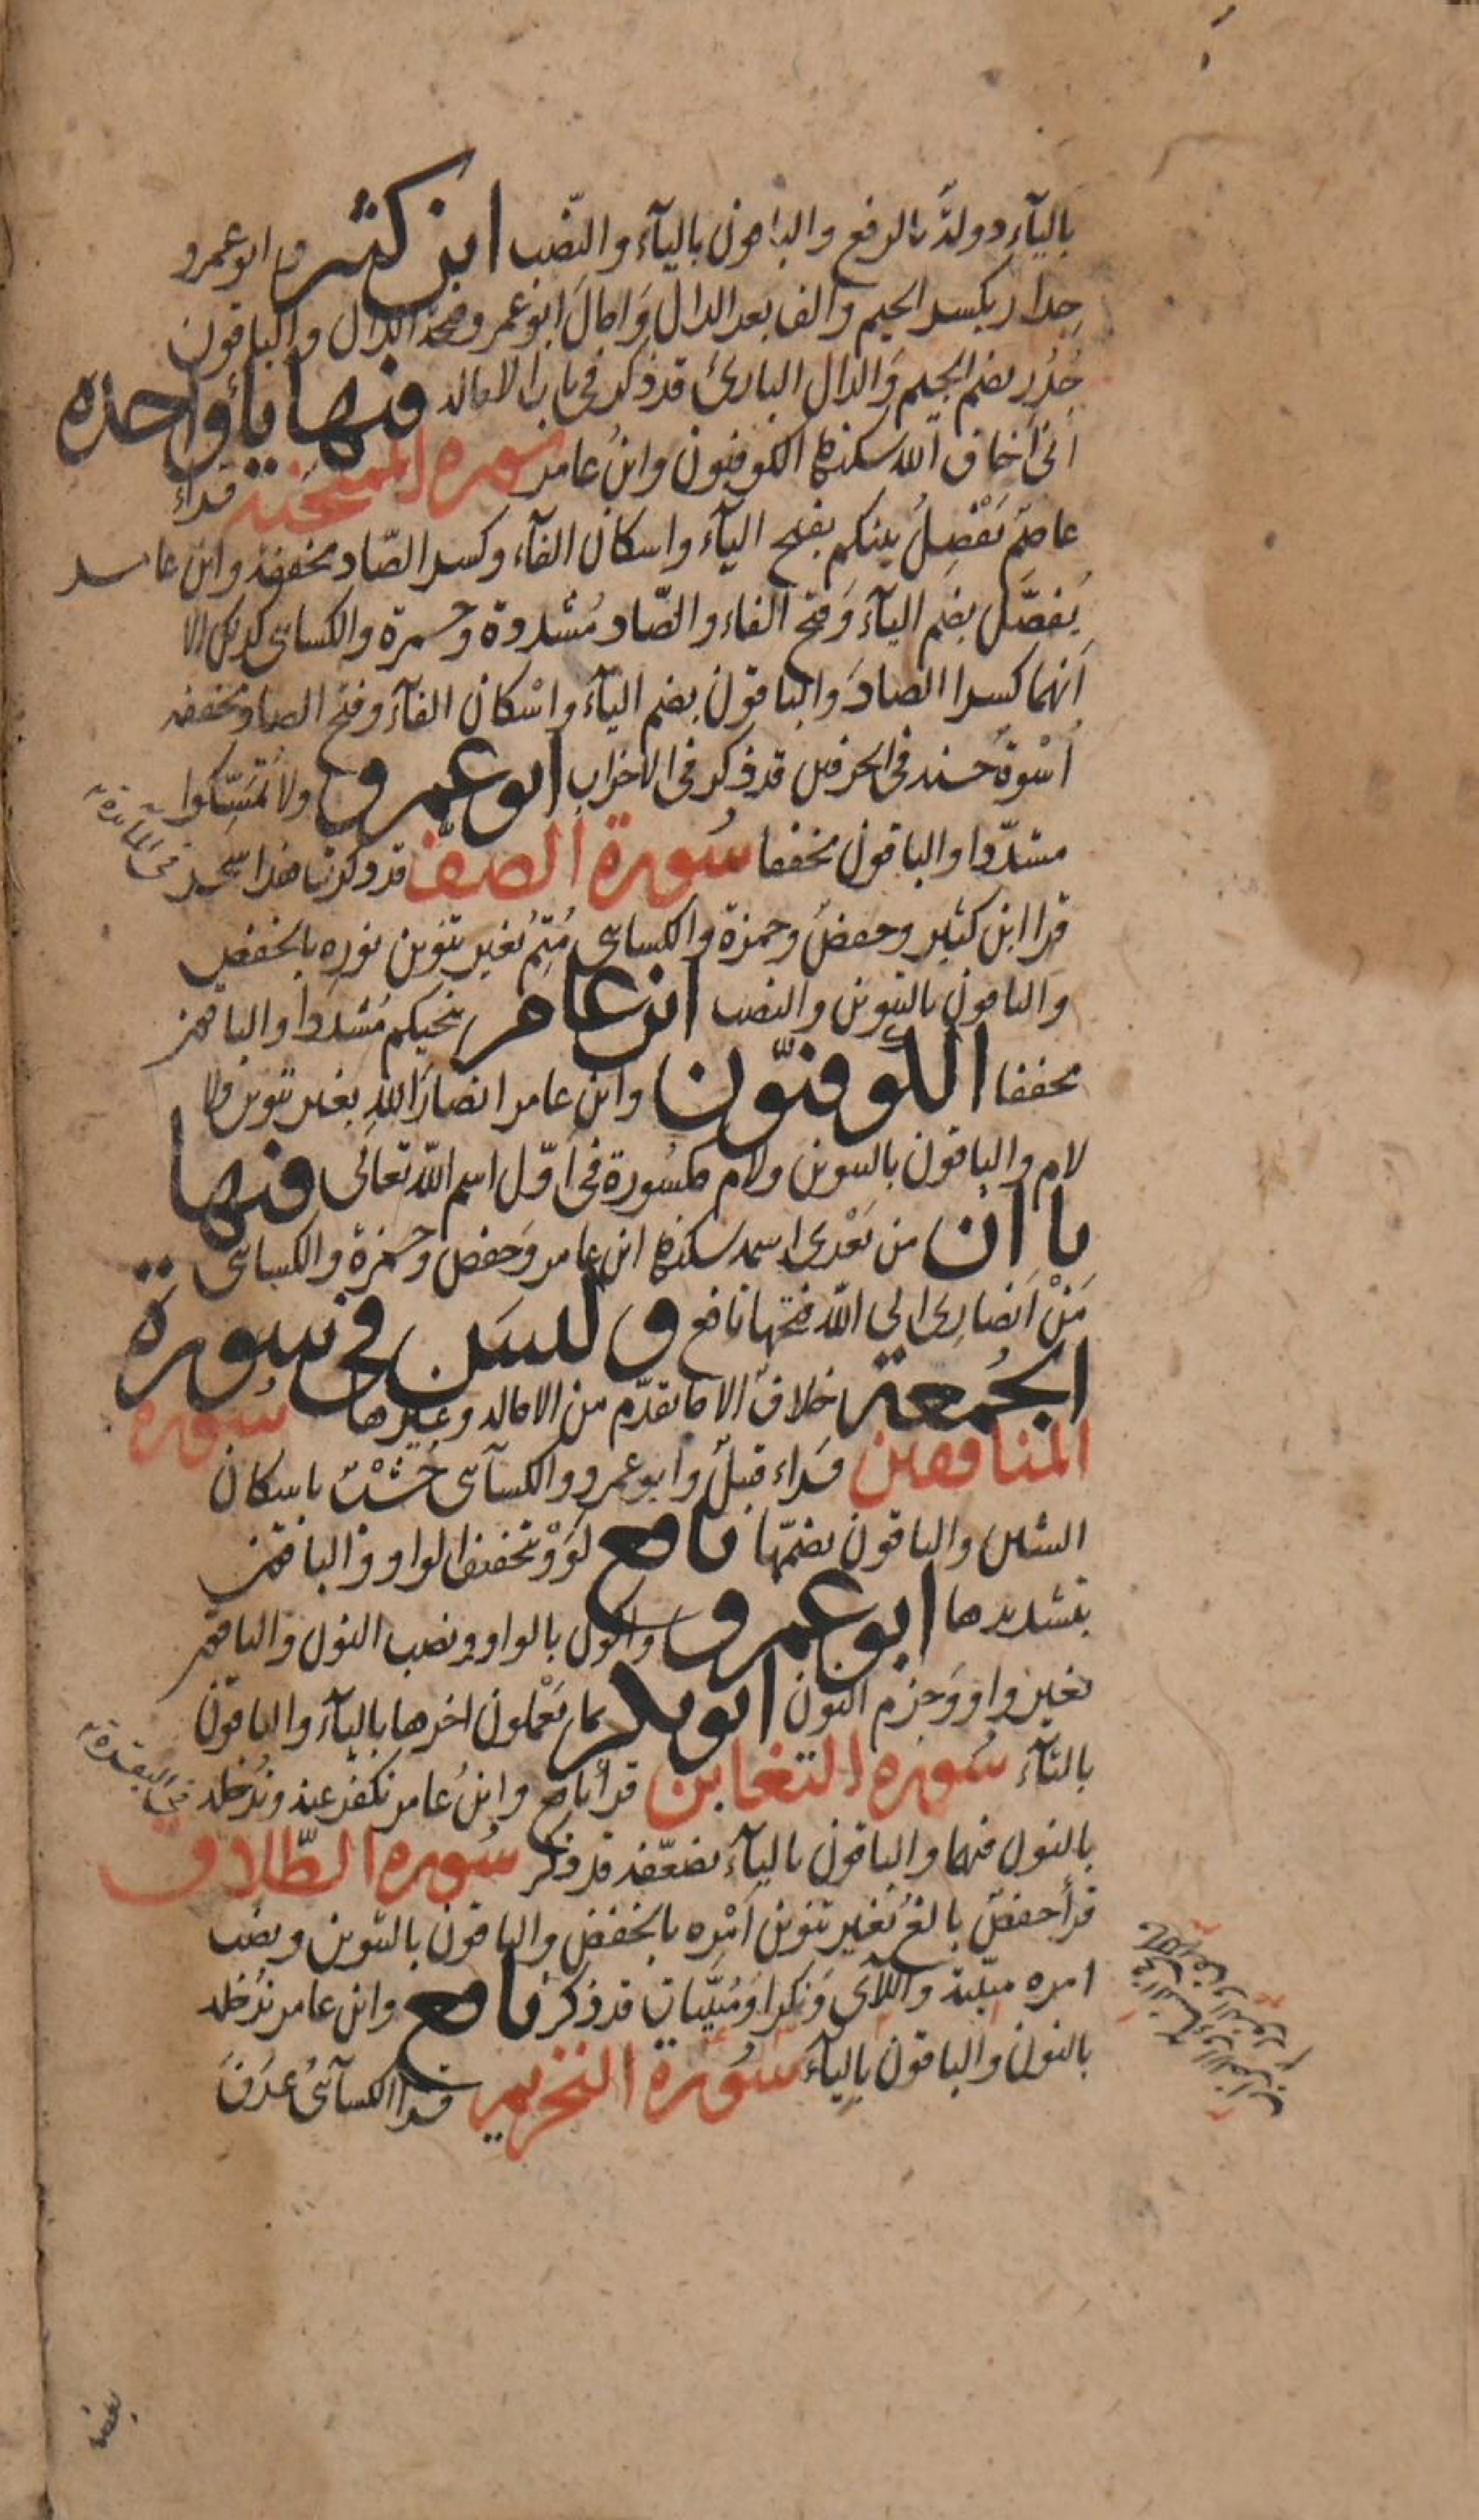 بالياء دولة بالرفع والباقون بالياء والنصب ابن كثير وابو عمرو
جدار بكسر الجيم والف بعد الدال وامال ابو عمرو فتحة الدال والباقون
جُدُر بضم الجيم والدال البارئ قد ذكر في باب الاماله فيها ياء واحدة
انى اخاف الله سكنها الكوفيون وابن عامر سورة الممتحنة قراء
عاصم يَفْصِلُ بينكم بفتح الياء واسكان الفاء وكسر الصّاد مخففة وابن عامر
يُفصَّل بضم الياء وفتح الفاء والصّاد مُشددة وحمزة والكسائى كذلك الا
انهما كسرا الصاد والباقون بضم الياء واسْكان الفاء وفتح الصاد مخففه
اُسْوة حسنه فى الحرفين قد ذكر فى الاحزاب ابو عمرو ولا تُمَسِّكوا
مشدّدا والباقون مخففا سُورة الصفّ قد ذكرنا هذا سحر فى المائدة
قرا ابن كثير وحفص وحمزة والكسائى مُتِمُّ بغير تنوين نوره بالخفض
والباقون بالتنوين والنصب ابن عامر تنجيكم مُشددا والباقون
مخففا الكوفيّون وابن عامر انصارَ الله بغير تنوين ولا
لام والباقون بالتنوين ولام مكسُورة فى اوّل اسم الله تعالى فيها
يا ان من بَعْدى اسمه سكنها ابن عامر وحفص وحمزة والكسائى
مَنْ اَنصارى الى الله فتحها نافع وليسَ فى سورة
الجُمعة خلافٌ الا ما تقدّم من الاماله وغيرها سُورة
المنافقين قَراء قنبل وابو عمرو والكسآئى خُشْبٌ باسكان
الشين والباقون بضمّها نافع لَوَوْا بتخفيف الواو والباقون
بتشديدها ابو عمرو واكون بالواو ونصب النون والباقون
بغير واو وَجزم النون ابو بكر بما يَعْملون اخرها بالياء والباقون
بالتاء سُورة التغابن قرأ نافع وابنُ عامر نكفر عنه ونُدخله فى البقرة
بالنون فيهما والباقون بالياء يضعّفه قد ذكر سُورة الطّلاق
قرأ حفصٌ بالغُ بغير تنوين اَمْرِه بالخفض والباقون بالتنوين ونصب
امره مبيّنة واللآئى ونكرا ومُبيّنات قد ذكر نافع وابن عامر ندخله
بالنون والباقون بالياء سُورة التحريم قرا الكسآئى عرَف
بعض